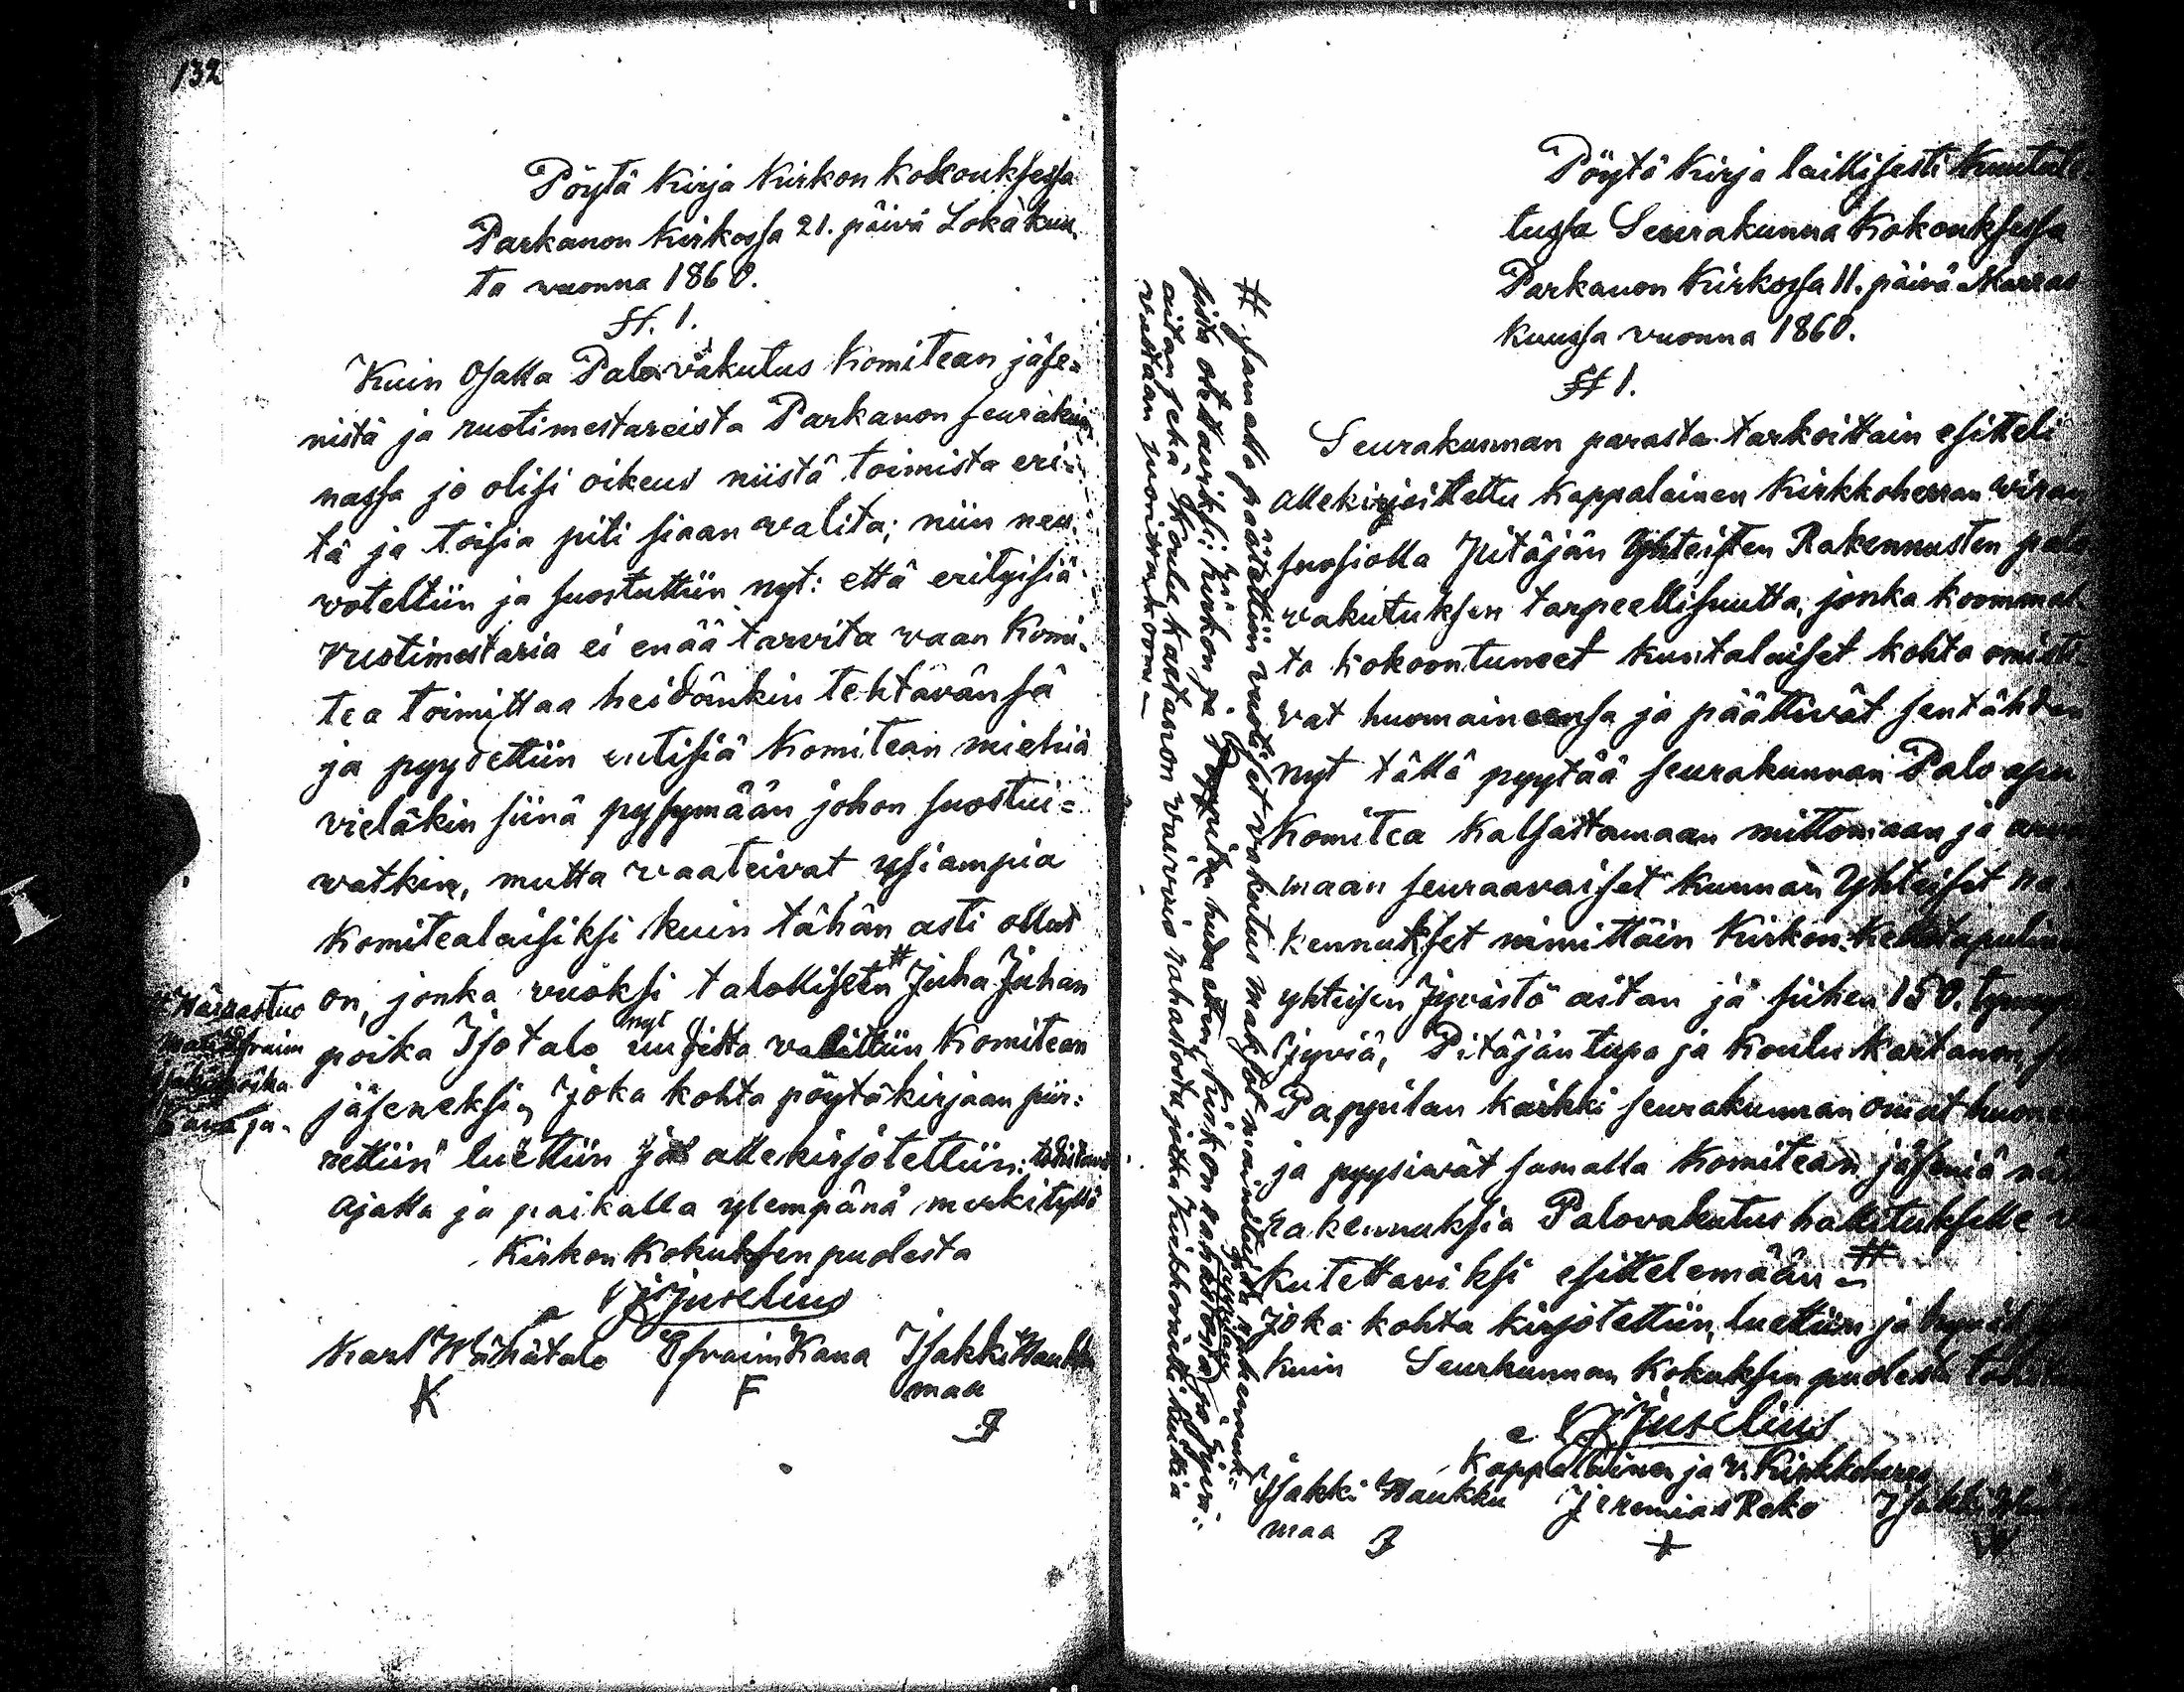 132
Pöytä Kirja Kirkon kokouksessa
Parkanon Kirkossa 21. päivä Lokakuu
ta vuonna 1860.
§§. 1.
Kuin Osalla Palovakutus Komitean jäse=
nistä ja ruotimestareista Parkanon seurakun
nassa jo olisi oikeus niistä toimista eri=
tä ja toisia piti siaan valita; niin neu
voteltiin ja suostuttiin nyt: että erityisiä
ruotimestaria ei enää tarvita vaan Komi=
tea toimittaa heidänkin tehtävänsä
ja pyydettiin entisiä Komitean miehiä
vieläkin siinä pysymään johon suostui=
vatkin, mutta vaateivat usiampia
Komitealaisiksi kuin tähän asti ollut
on, jonka vuoksi talollisen # Juha Juhan
poika Isotalo nyt uudesta valittiin Komitean
jäseneksi, Joka kohta pöytäkirjaan pii=
rettiin luettiin ja allekirjotettiin: todistaa
ajalla ja paikalla ylempänä merkityllä
Kirkon Kokuksen puolesta
Juselius
Karl Wähätalo Efraim Kana Isakki Haukka
maa
K F I
Efraim
poika
Kana ja
Pöytä Kirja laillisesti kuulute
tussa Seurakunna Kokouksessa
Parkanon Kirkossa 11. päivä Marras
kuussa vuonna 1860.
§§ 1.
Seurakunnan parasta tarkoittain esitteli
allekirjoitettu Kappalainen Kirkkoherran viran
suosiolla Pitäjän Yhteisten Rakennusten palo
vakutuksen tarpeellisuutta, jonka kommal
ta kokoontuneet kuntalaiset kohta omisti
vat huomaineensa ja päättivät sentähden
nyt tällä pyytää seurakunnan Palo apu
Komitea kalsastamaan mittomaan ja arvi
maan seuraavaiset kunnan Yhteiset ra
kennukset nimittäin Kirkon Kellotapulin
yhteisen Jyvästö aitan ja siihen 150. tynnyr
jyviä, Pitäjän tupa ja Koulu kartanon,
Pappilan kaikki seurakunnan omat huon
ja pyysivät samalla Komitean jäseniä nä
rakennuksia Palovakutus hallitukselle va
kutettaviksi esittelemään #
Joka kohta kirjotettiin, luettiin ja hyväk
kuin Seurkunnan Kokuksen puolesta todista
Juselius
Kappalainen ja v. Kirkkoherra
Isakki Haukka Jeremias Reko Isakki
maa I
W
# samalla päätettiin vuotiset vakutus maksot mainituista rakennuk=
sista otettaviksi: kirkon ja Pappilan huonetten, kirkon rahastosta, jyvä=
aitan sekä Koulu kartanon vaivais rahastosta jotka kirkkoväärti kukkia
vastaan